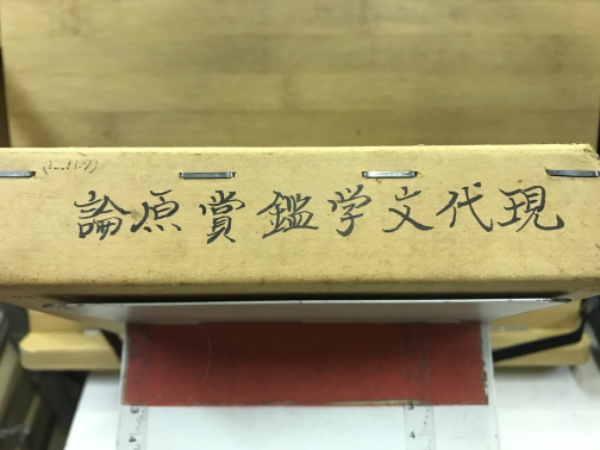 現代文学鑑賞原論